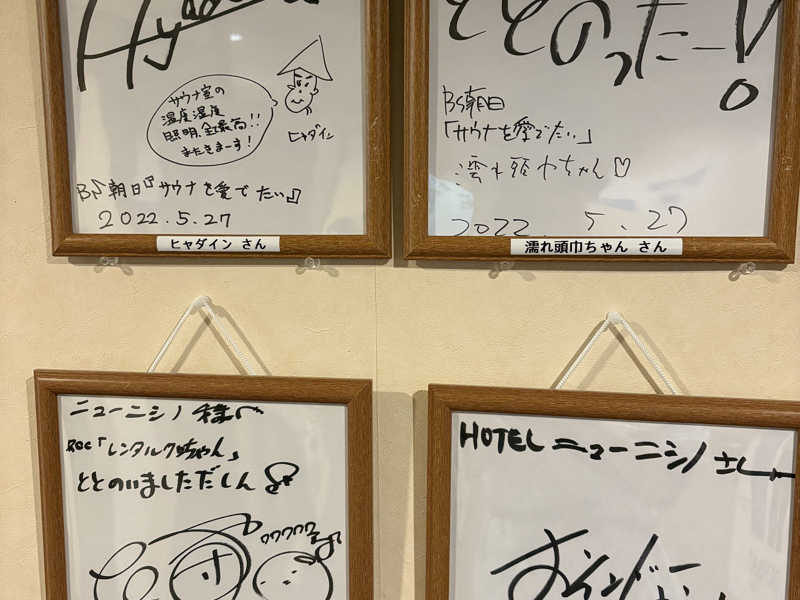 Hyada
サウナ室の
温度湿度
照明、全最高!!
またきまーす!
ヒャダイン
BS朝日『サウナを愛でたい』
2022.5.27
ヒャダイン さん
ととのったー!
BS朝日
「サウナを愛でたい」
濡れ頭巾ちゃん♡
2022. 5.27
濡れ頭巾ちゃん さん
ニューニシノ様へ
「レンタルクちゃん」
ととのいましただしん
ワワワワワ
サ
HOTEL ニューニシノ さん